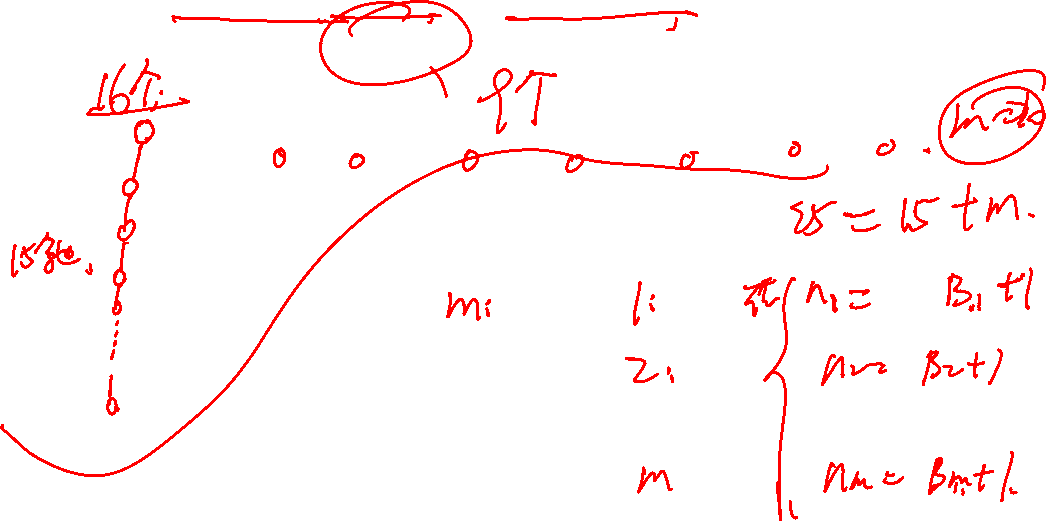 16个
9个
25 = 15 + m.
m:
1: n₁ = B₁ + 1
2: n₂ = B₂ + 1
m nm = Bm + 1.